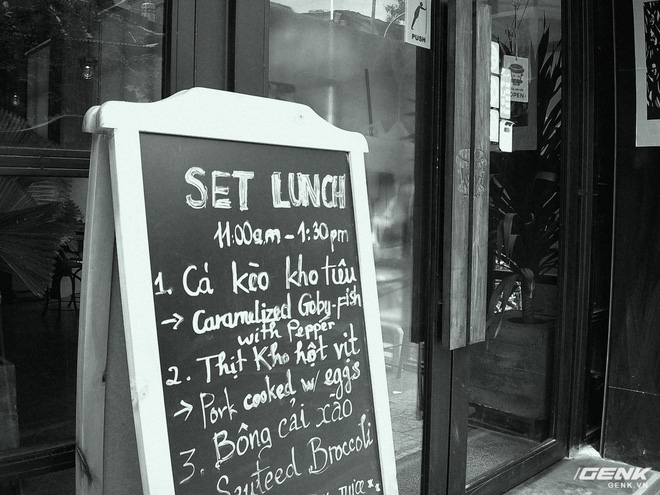 PUSH
OPEN
SET LUNCH
11:00a.m - 1:30pm
1. Cá kèo kho tiêu
→ Caramelized Goby-Fish
with Pepper
2. Thịt Kho hột vịt
→ Pork cooked w/ eggs
3. Bông cải xào
Sauteed Broccoli
GENK
GENK.VN